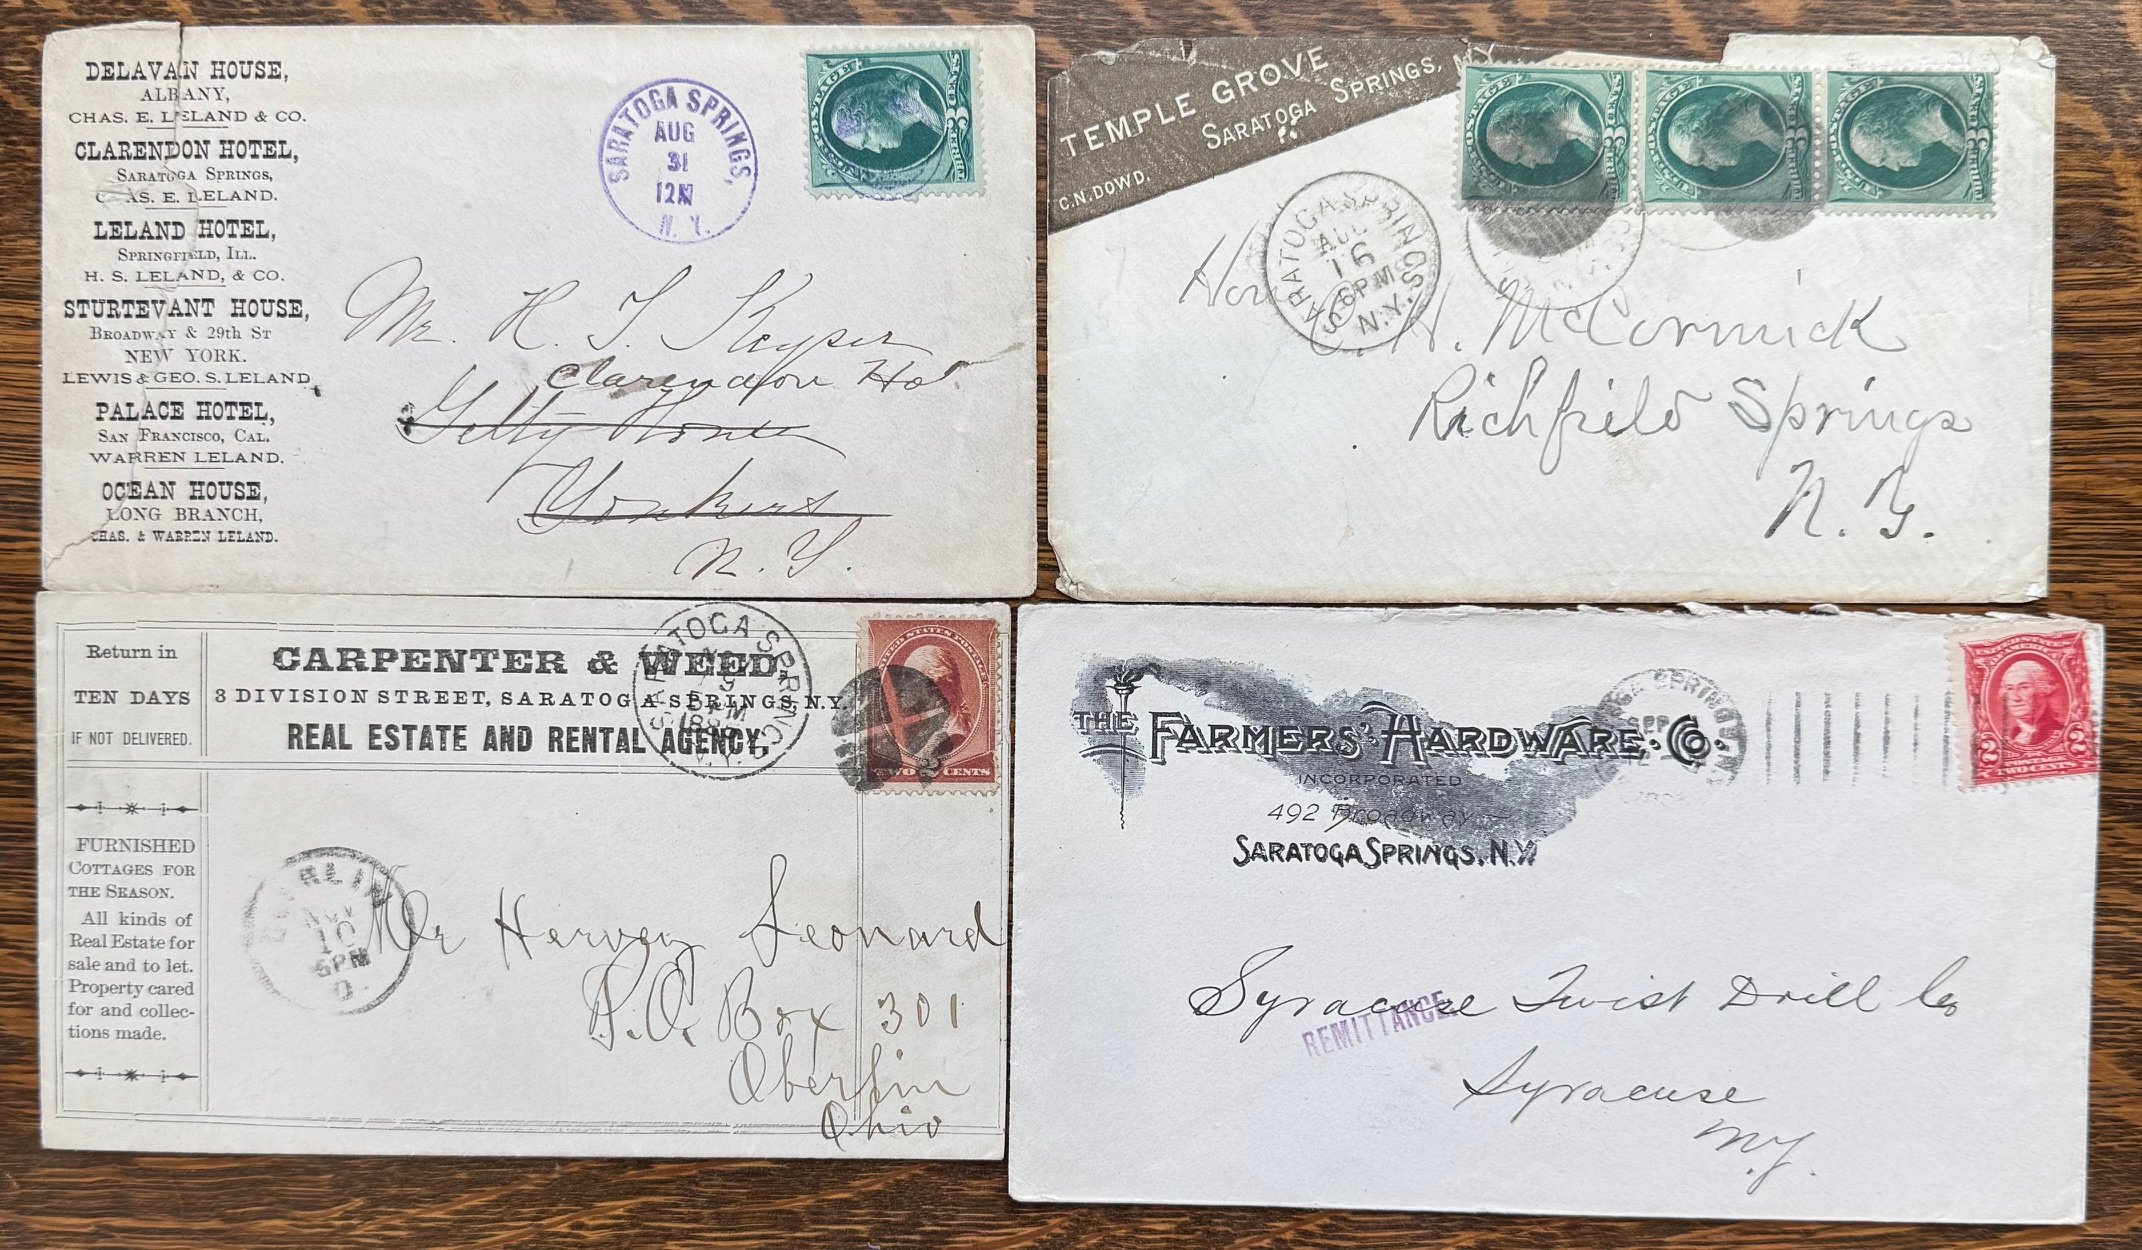 DELAVAN HOUSE,
ALBANY,
CHAS. E. LELAND & CO.
CLARENDON HOTEL,
SARATOGA SPRINGS,
CHAS. E. LELAND.
LELAND HOTEL,
SPRINGFIELD, ILL.
H. S. LELAND, & CO.
STURTEVANT HOUSE,
BROADWAY & 29th ST
NEW YORK.
LEWIS & GEO. S. LELAND
PALACE HOTEL,
SAN FRANCISCO, CAL.
WARREN LELAND.
OCEAN HOUSE,
LONG BRANCH,
CHAS. & WARREN LELAND.
SARATOGA SPRINGS,
AUG
31
N. Y.
POSTAGE
3 CENTS
Mr. H. T. Keyser
Clarendon Ho
Getty House
Yonkers
N. Y.
TEMPLE GROVE
SARATOGA SPRINGS, N.Y.
C.N. DOWD.
POSTAGE
POSTAGE
POSTAGE
SARATOGA SPRINGS
AUG
16
6PM
N.Y.
Hon
C. H. McCormick
Richfield Springs
N. Y.
Return in
TEN DAYS
IF NOT DELIVERED.
CARPENTER & WEED,
3 DIVISION STREET, SARATOGA SPRINGS, N.Y.
REAL ESTATE AND RENTAL AGENCY,
SARATOGA SPRINGS
N.Y.
UNITED STATES POSTAGE
TWO CENTS
FURNISHED
COTTAGES FOR
THE SEASON.
All kinds of
Real Estate for
sale and to let.
Property cared
for and collec-
tions made.
OBERLIN
NOV
10
6PM
O.
Mr Hervey Leonard
P.O. Box 301
Oberlin
Ohio
THE FARMERS' HARDWARE. CO.
INCORPORATED
492 Broadway
SARATOGA SPRINGS, N.Y.
2 2
TWO CENTS
Syracuse Twist Drill Co
REMITTANCE.
Syracuse
N.Y.